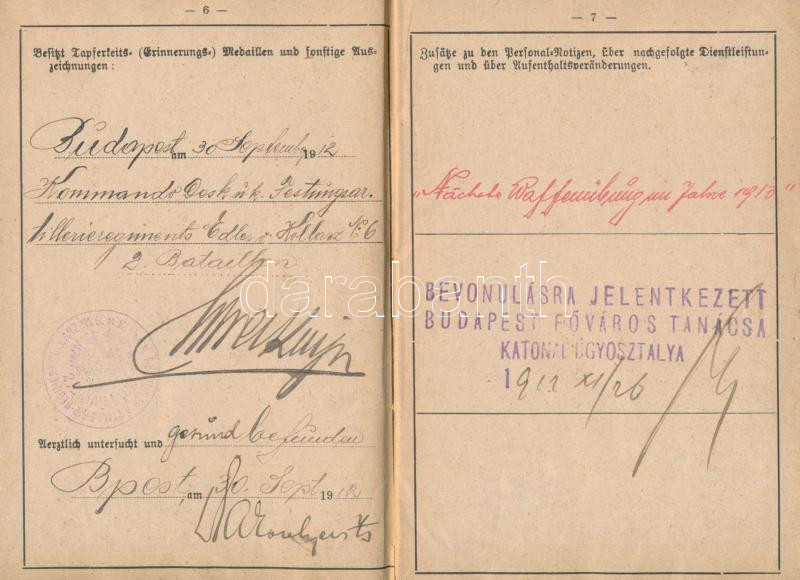 — 6 —
Besitzt Tapferkeits- (Erinnerungs-) Medaillen und sonstige Aus-
zeichnungen:
Budapest am 30 September 1912
Kommando des k. u. k. Festungsar-
tillerieregiments Edler v. Kollarz № 6
2. Bataillon
Aerztlich untersucht und gesund befunden
Bpest, am 30. Sept 1912
— 7 —
Zusätze zu den Personal-Notizen, über nachgefolgte Dienstleistun-
gen und über Aufenthaltsveränderungen.
"Nächste Waffenübung im Jahre 1913"
BEVONULÁSRA JELENTKEZETT
BUDAPEST FŐVÁROS TANÁCSA
KATONAI ÜGYOSZTÁLYA
1912 XI/26
darabanth